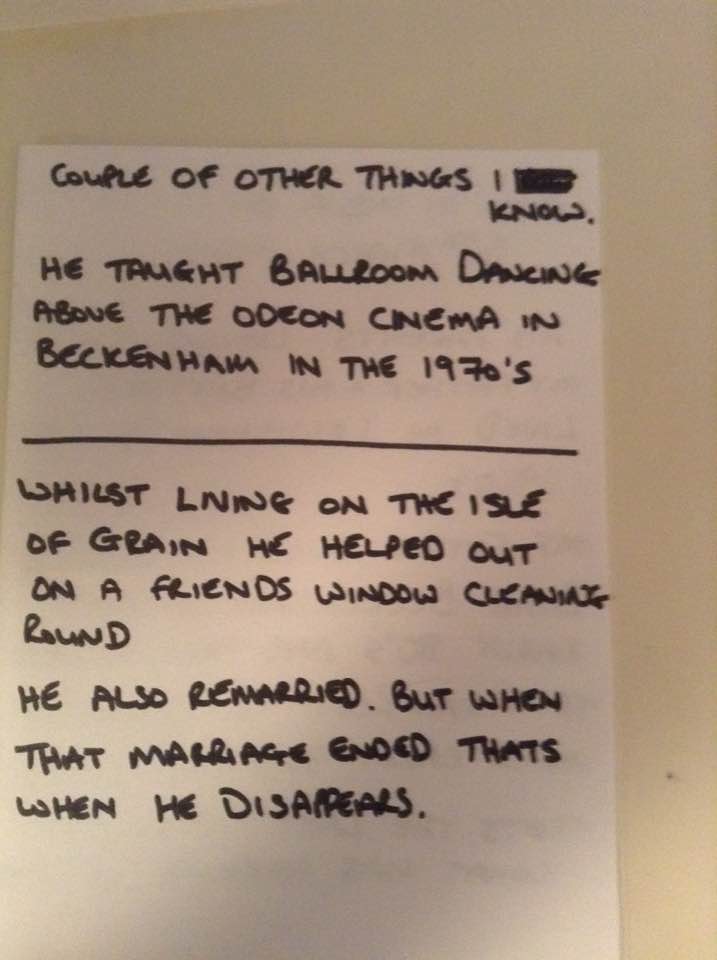 COUPLE OF OTHER THINGS I
KNOW.
HE TAUGHT BALLROOM DANCING
ABOVE THE ODEON CINEMA IN
BECKENHAM IN THE 1970'S
WHILST LIVING ON THE ISLE
OF GRAIN HE HELPED OUT
ON A FRIENDS WINDOW CLEANING
ROUND
HE ALSO REMARRIED. BUT WHEN
THAT MARRIAGE ENDED THATS
WHEN HE DISAPPEARS.